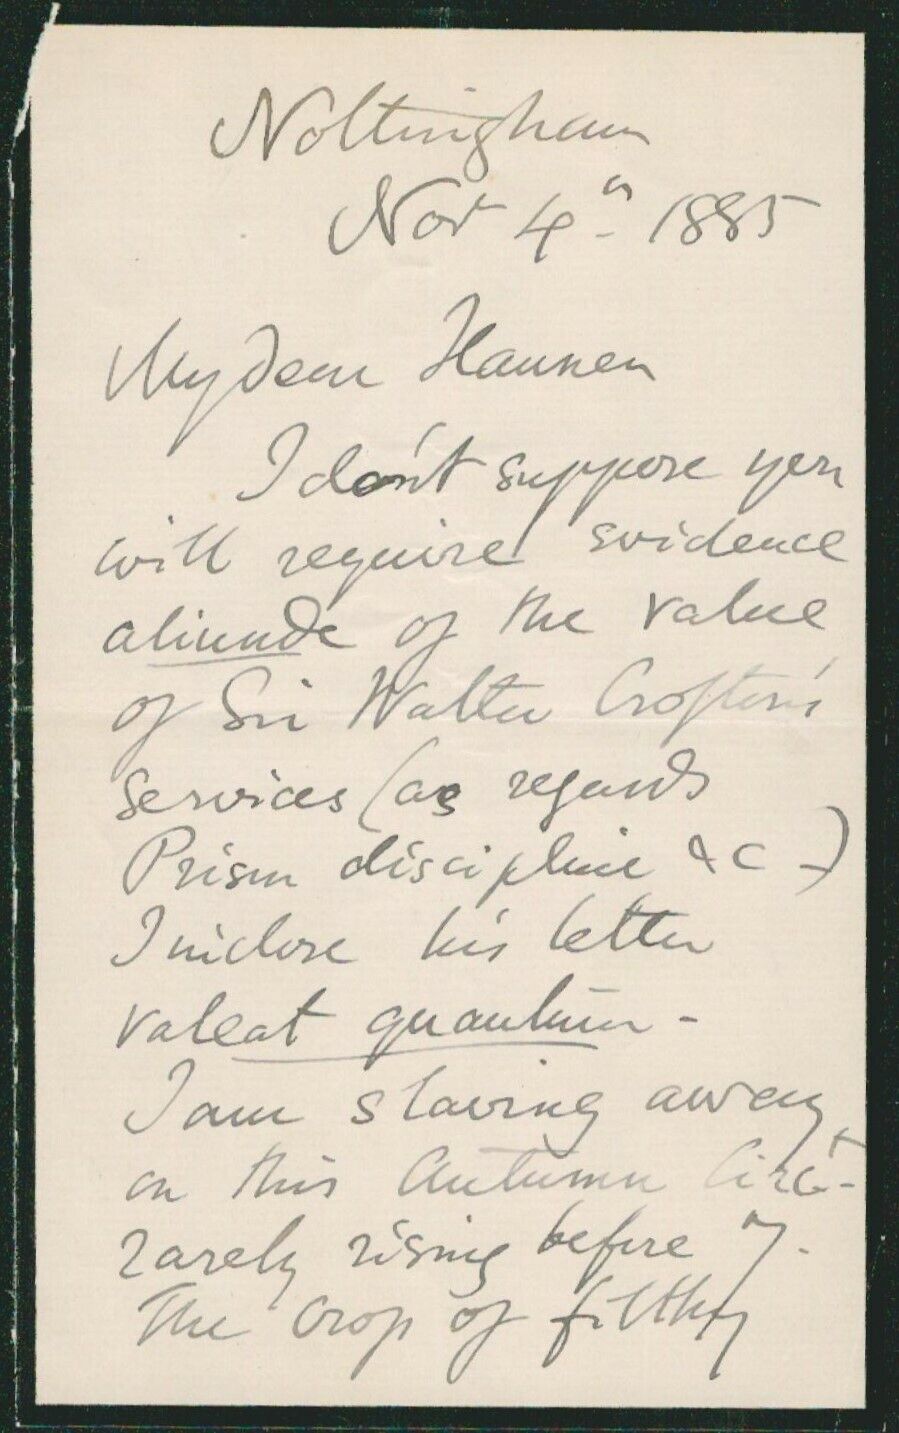 Nottingham
Nov 4th 1885
My dear Hannen
I don't suppose you
will require evidence
aliunde of the value
of Sir Walter Crofton's
services (as regards
Prison discipline &c -)
I inclose his letter
valeat quantum -
I am slaving away
on this Autumn Circt -
rarely rising before 7.
The crop of filthy